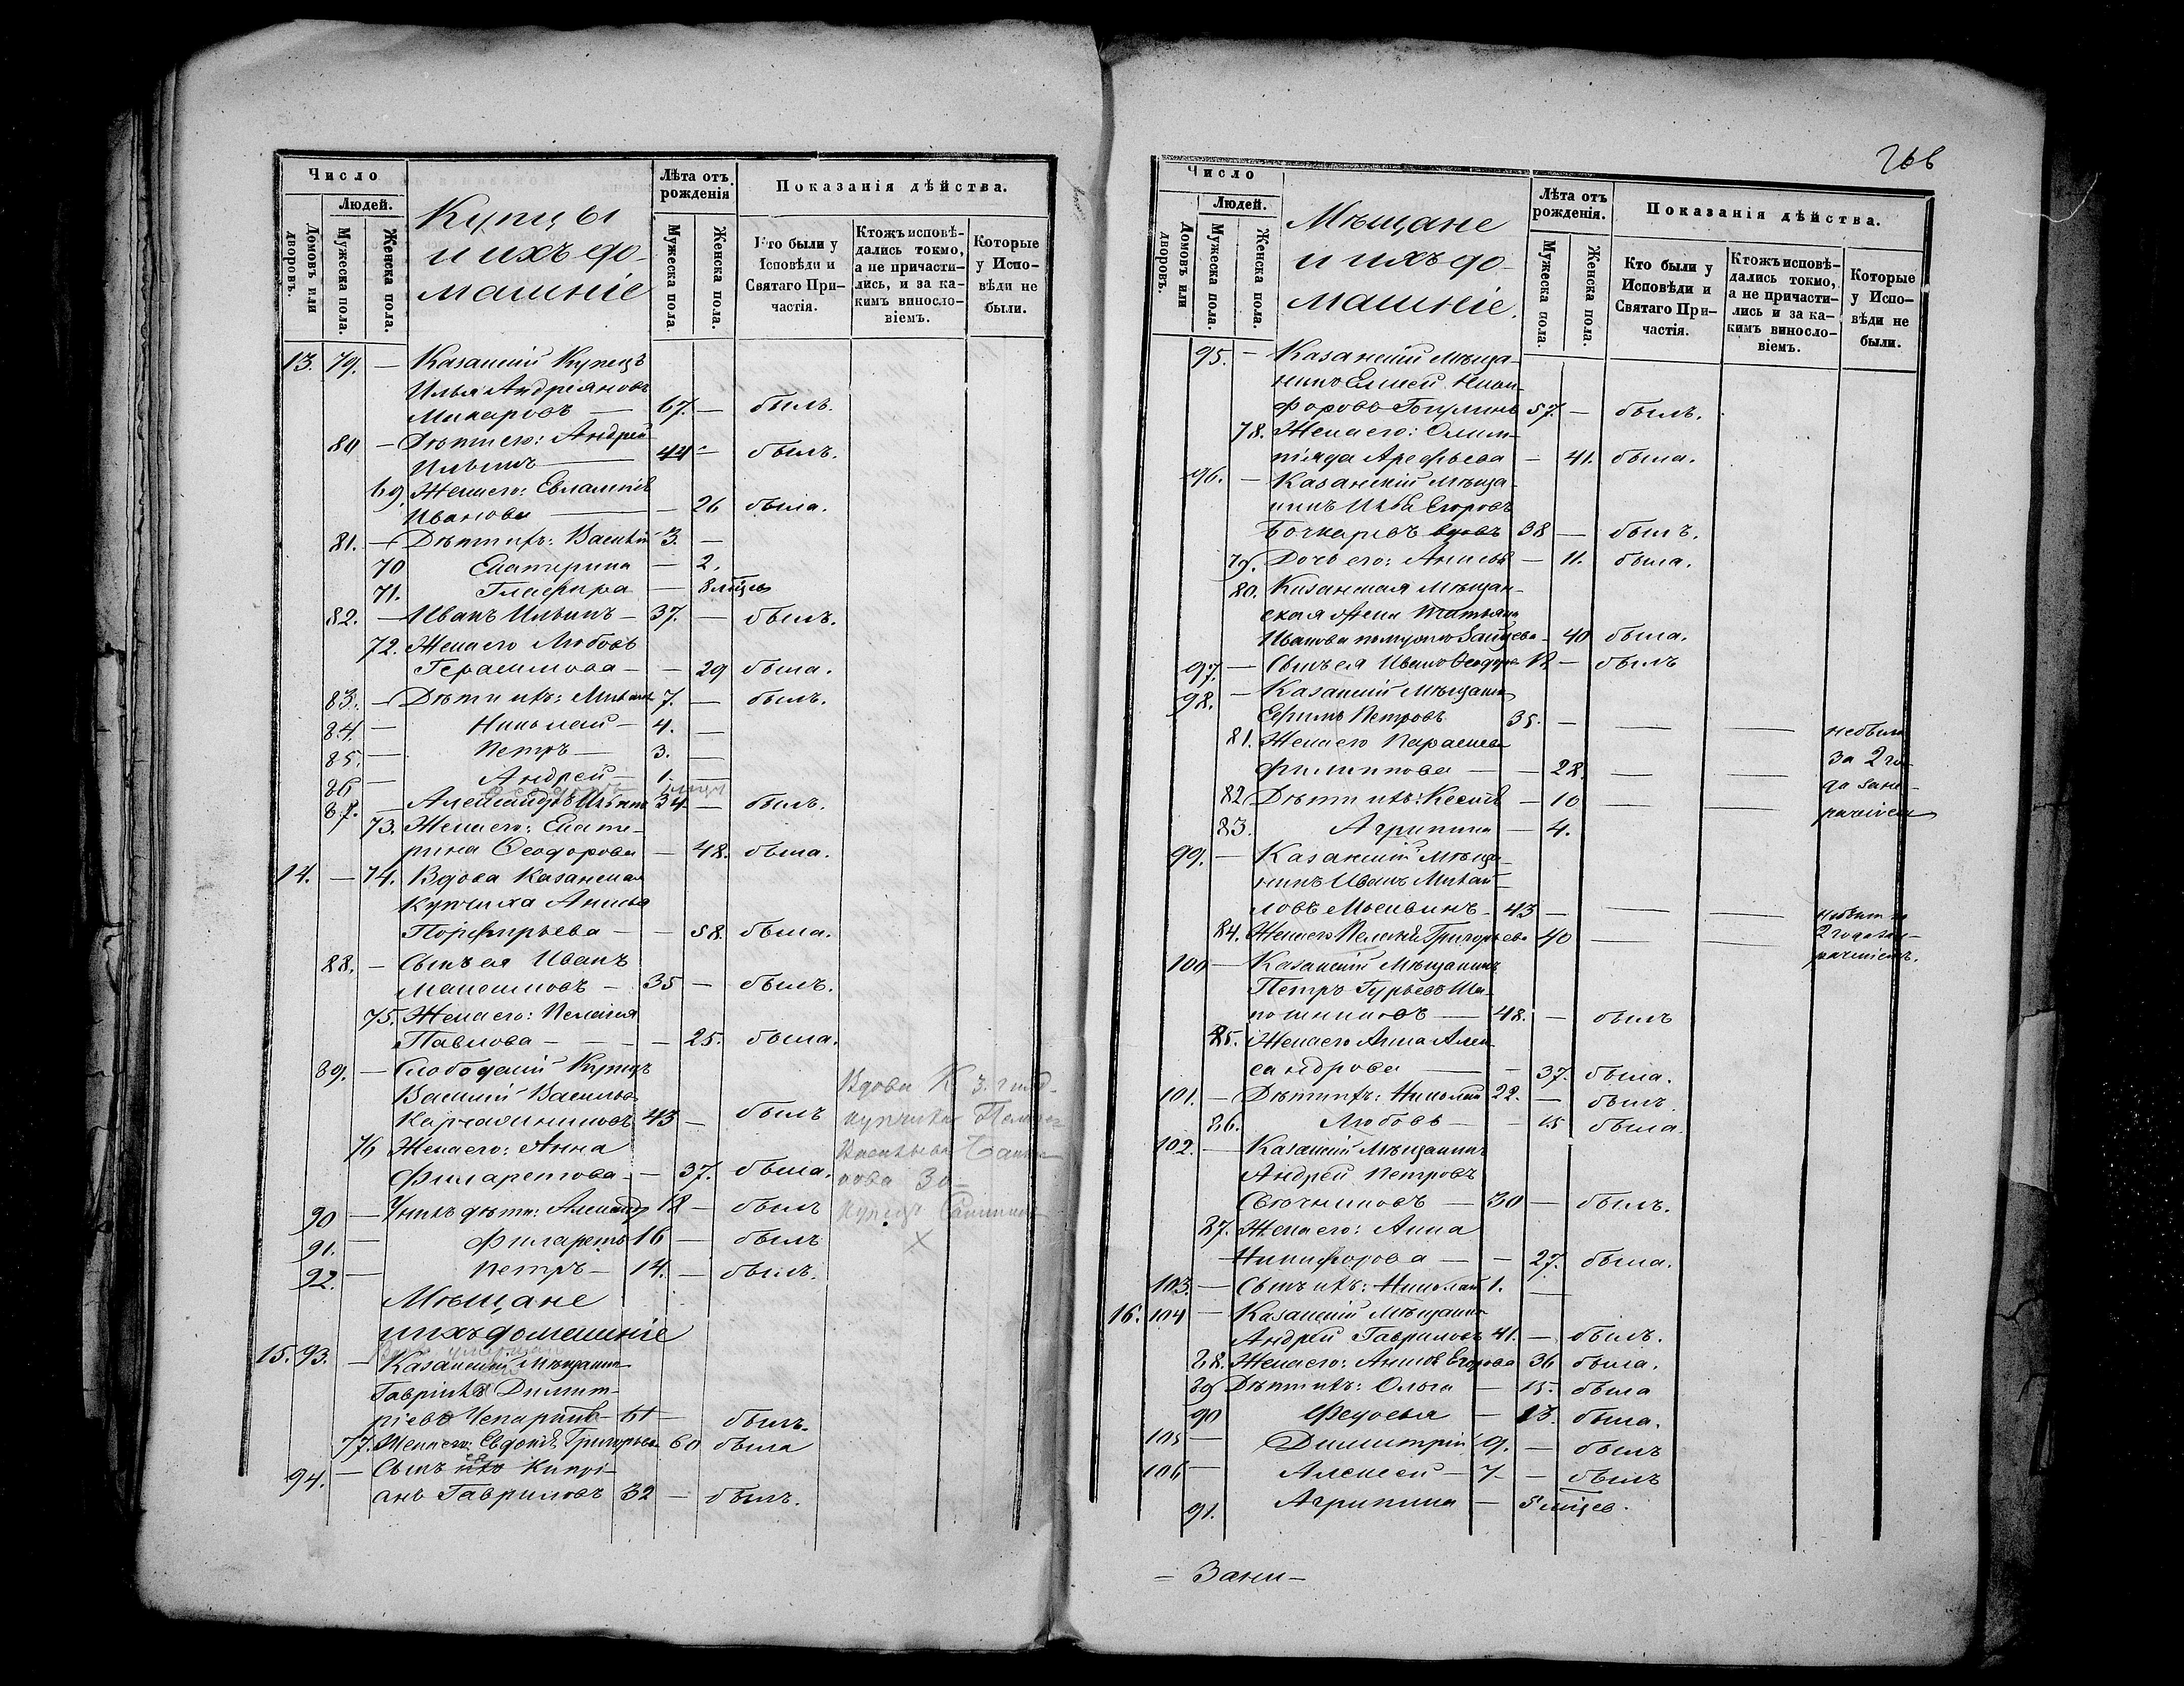 Число
Людей.
Домовъ или дворовъ.
Мужеска пола.
Женска пола.
Купцы
и ихъ до-
машніе
Лѣта отъ рожденія
Мужеска пола.
Женска пола.
Показанія дѣйства.
Кто были у Исповѣди и Святаго При-частія.
Ктожъ исповѣ-дались токмо, а не причасти-лись, и за ка-кимъ винословіемъ.
Которые у Испо-вѣди не были.
13. 79. — Казанскій Купецъ
Илья Андреяновъ
Макаровъ — 67. — былъ.
80 — Дѣти его: Андрей
Ильинъ — 44 — былъ.
69. Жена его: Евлампія
Иванова — 26 была.
81. — Дѣти ихъ: Василій 3. —
70 Екатерина — 2.
71. Глафира — 8 мѣсц.
82. — Иванъ Ильинъ — 37. — былъ.
72. Жена его Любовь
Герасимова — 29 была.
83. — Дѣти ихъ: Михаилъ 7. — былъ.
84. — Николай — 4. —
85. — Петръ — 3. —
86 — Андрей — 1. —
87. — Александръ Ильинъ 34. — былъ.
73. Жена его: Екате-
рина Ѳеодорова — 48. была.
14. — 74. Вдова Казанская
Купчиха Анисья
Порфирьева — 58. была.
88. — Сынъ ея Иванъ
Максимовъ — 35 — былъ.
75. Жена его: Пелагія
Павлова — 25. была.
89. — Слободскій Купецъ
Василій Васильевъ
43 — былъ
76 Жена его: Анна
Филаретова — 37. была.
90 — У нихъ дѣти: Александръ 18 — былъ
91. — Филаретъ 16 — былъ
92. — Петръ — 14. — былъ.
Вдова К. 3. гильд.
купчиха
Васильева
30
Купецъ
×
Мѣщане
и ихъ домашніе
15. 93. — Казанскій Мѣщанинъ
Гавріилъ Димит-
ріевъ Чепаринъ — 61 — былъ.
77. Жена его: Евдокія Григорьева 60 была
94. — Сынъ ихъ Кипрі-
анъ Гавриловъ 32 — былъ.
266
Число
Людей.
Домовъ или дворовъ.
Мужеска пола.
Женска пола.
Мѣщане
и ихъ до-
машніе.
Лѣта отъ рожденія.
Мужеска пола.
Женска пола.
Показанія дѣйства.
Кто были у Исповѣди и Святаго При-частія.
Ктожъ исповѣ-дались токмо, а не причасти-лись и за ка-кимъ винословіемъ.
Которые у Испо-вѣди не были.
95. — Казанскій Мѣща-
нинъ Елисей Ники-
форовъ 57. — былъ.
78. Жена его: Олим-
піада Арефьева — 41. была.
96. — Казанскій Мѣща-
нинъ Илья Егоровъ
Бочкаревъ вдовъ 38 — былъ.
79. Дочь его: Анисья — 11. была.
80. Казанская Мѣщан-
ская жена Татьяна
Иванова по мужѣ Зайцева — 40 была.
97. — Сынъ ея Иванъ 12 — былъ
98. — Казанскій Мѣщанинъ
Ефимъ Петровъ 35. — — —
81. Жена его Параскева
Филиппова — 28. — —
82 Дѣти ихъ: Ксенія — 10 — —
83. Агрипина — 4.
не были
за 2 го-
да
99. — Казанскій Мѣща-
нинъ Иванъ Михай-
ловъ 43 — — —
84. Жена его Пелагія Григорьева 40 — —
не были за
2 года
100 — Казанскій Мѣщанинъ
Петръ Гурьевъ Ша-
пошниковъ — 48. — былъ
85. Жена его Анна Алек-
сандрова — 37. была.
101. — Дѣти ихъ: Николай 22. — былъ.
86. Любовь — 15 была.
102. — Казанскій Мѣщанинъ
Андрей Петровъ
30 — былъ.
87. Жена его: Анна
Никифорова — 27. была.
103. — Сынъ ихъ: Николай 1. —
16. 104 — Казанскій Мѣщанинъ
Андрей Гавриловъ 41. — былъ.
88. Жена его: Анисія Егорова 36 была.
89 Дѣти ихъ: Ольга — 15. была
90 Федосья — 13. была.
105 — Димитрій 9. — былъ
106 — Алексей — 7. — былъ
91. Агрипина — 5 мѣсцев.
= Зани-